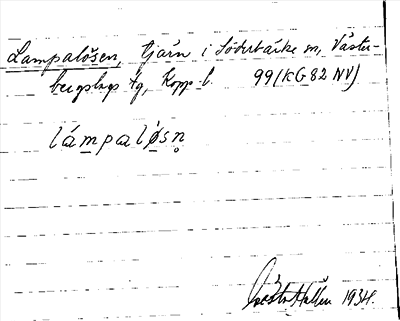 Lampalösen, tjärn i Söderbärke sn, Väster-
bergslags tg, Kopp. l. 99 (KG 82 NV)
lámpaløsn̥
Hallén 1934.